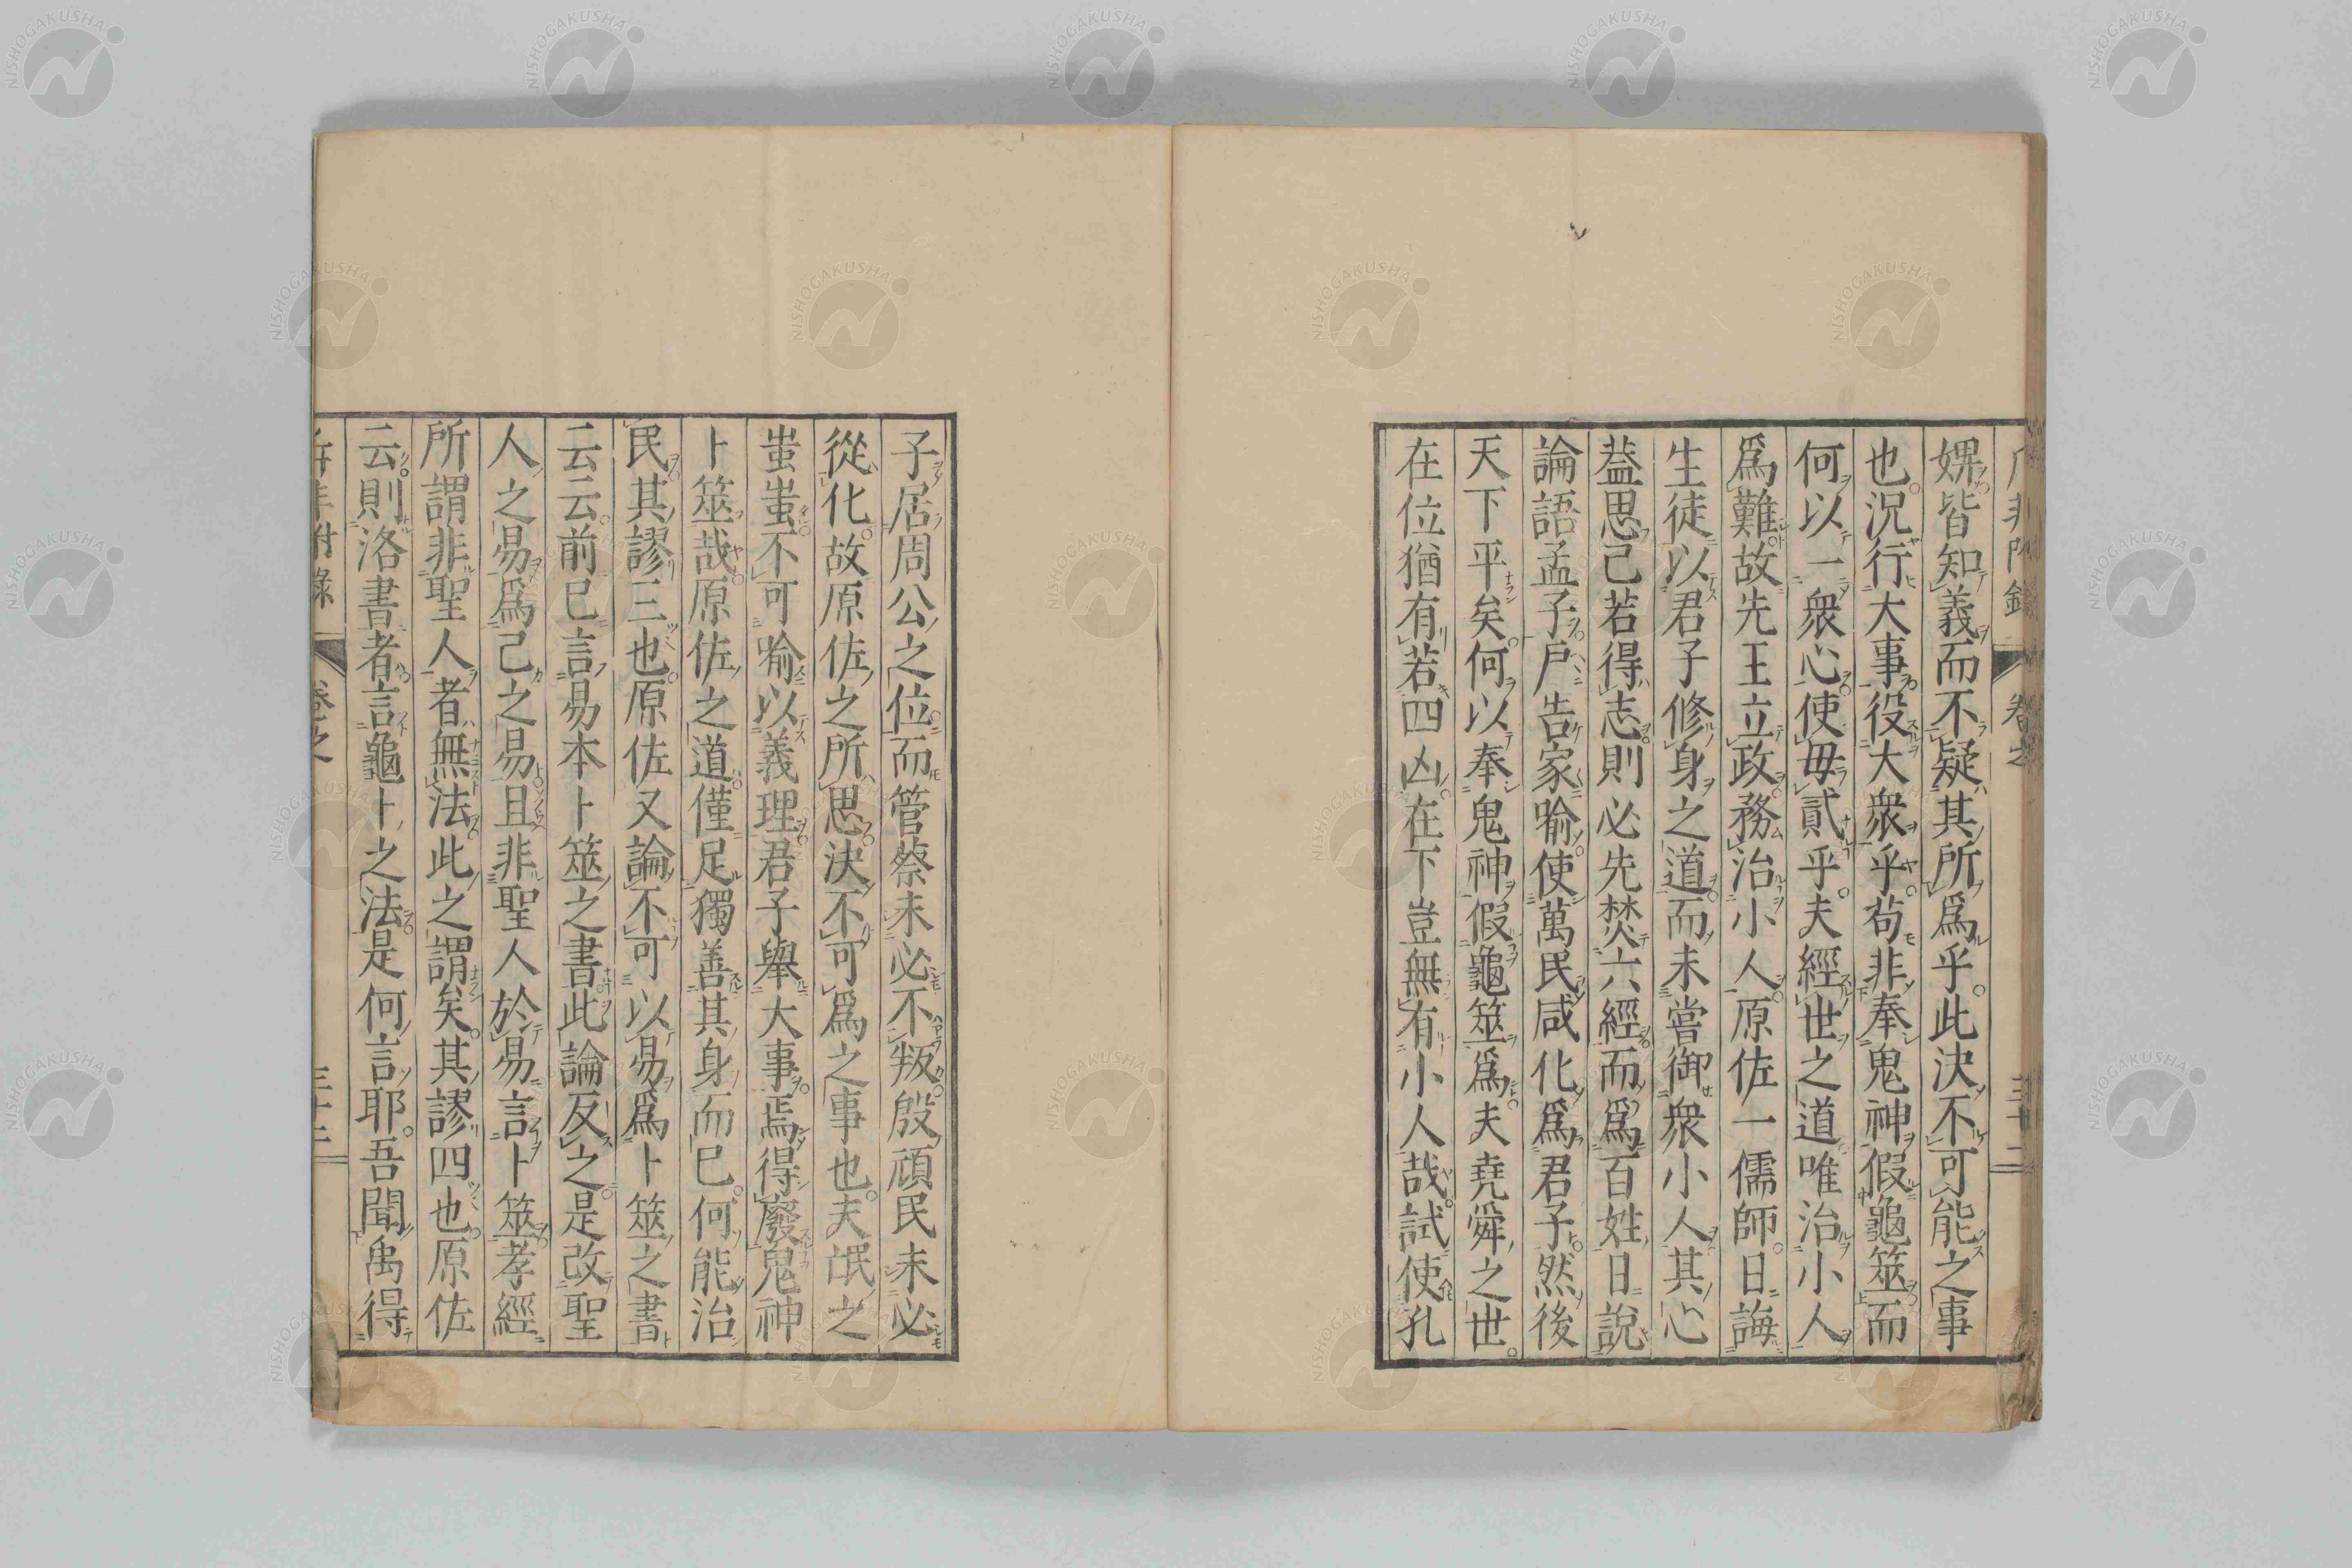 嫘皆知義而不疑其所爲乎此決不可能之事
也況行大事役大衆乎苟非奉鬼神假龜筮而
何以一衆心使毋貳乎夫經世之道唯治小人
爲難故先王立政務治小人原佐一儒師日誨
生徒以君子修身之道而未嘗御衆小人其心
蓋思己若得志則必先焚六經而爲百姓日說
論語孟子戶告家喻使萬民咸化爲君子然後
天下平矣何以奉鬼神假龜筮爲夫堯舜之世
在位猶有若四凶在下豈無有小人哉試使孔
子居周公之位而管蔡未必不叛殷頑民未必
從化故原佐之所思決不可爲之事也夫氓之
蚩蚩不可喻以義理君子舉大事焉得廢鬼神
卜筮哉原佐之道僅足獨善其身而已何能治
民其謬三也原佐又論不可以易爲卜筮之書
云云前已言易本卜筮之書此論反之是改聖
人之易爲己之易且非聖人於易言卜筮孝經
所謂非聖人者無法此之謂矣其謬四也原佐
云則洛書者言龜卜之法是何言耶吾聞禹得
非附錄 卷之 三十二
NISHOGAKUSHA